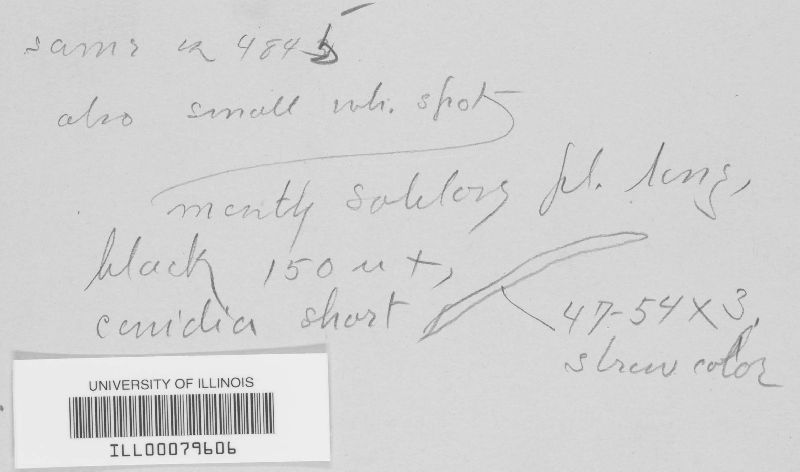 same as 4845
also small wh. spot
mostly solitary pl. long,
black 150 u +,
conidia short
47-54 X 3,
straw color
UNIVERSITY OF ILLINOIS
ILL00079606